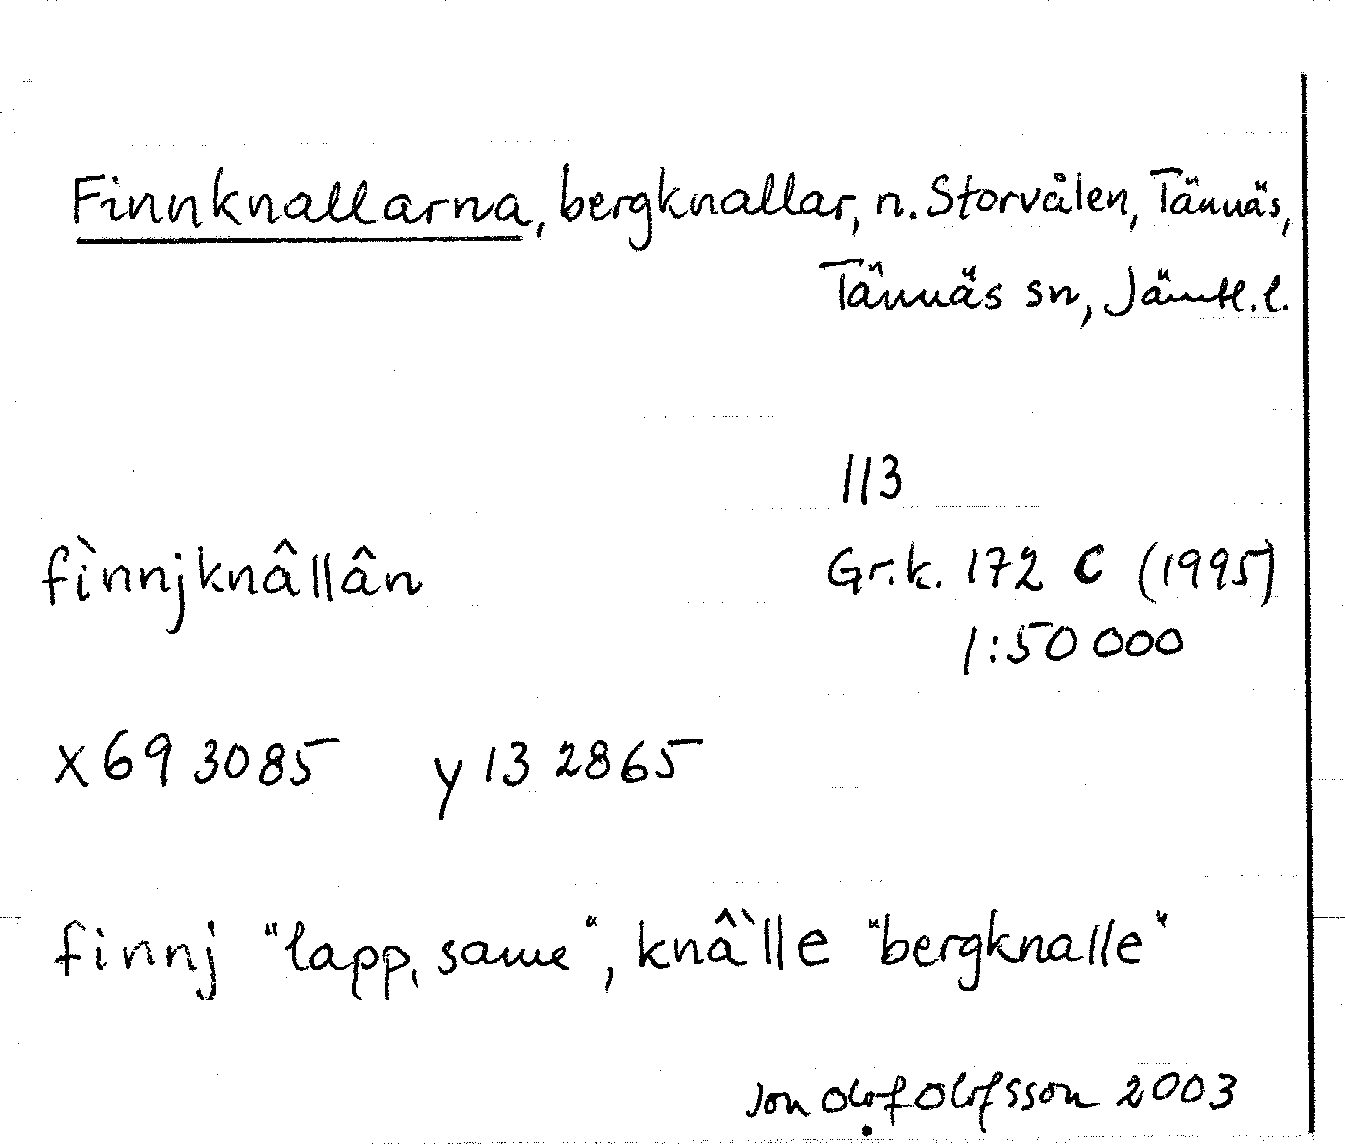 Finnknallarna, bergknallar, n. Storvålen, Tännäs,
Tännäs sn, Jämtl. l.
113
fìnnjknâllân Gr.k. 172 C (1995)
1:50 000
x 69 3085 y 13 2865
finnj "lapp, same", knâ`lle "bergknalle"
Jon Olof Olofsson 2003